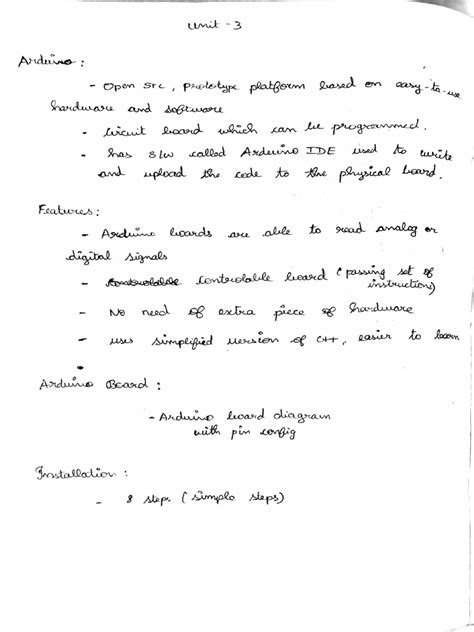 Unit - 3
Arduino :
- Open src, prototype platform based on easy-to-use
hardware and software
- circuit board which can be programmed.
- has s/w called Arduino IDE used to write
and upload the code to the physical board.
Features :
- Arduino boards are able to read analog or
digital signals
- controlable board (passing set of
instruction)
- No need of extra piece of hardware
- uses simplified version of C++, easier to learn
Arduino Board :
- Arduino board diagram
with pin config
Installation :
- 8 steps (simple steps)